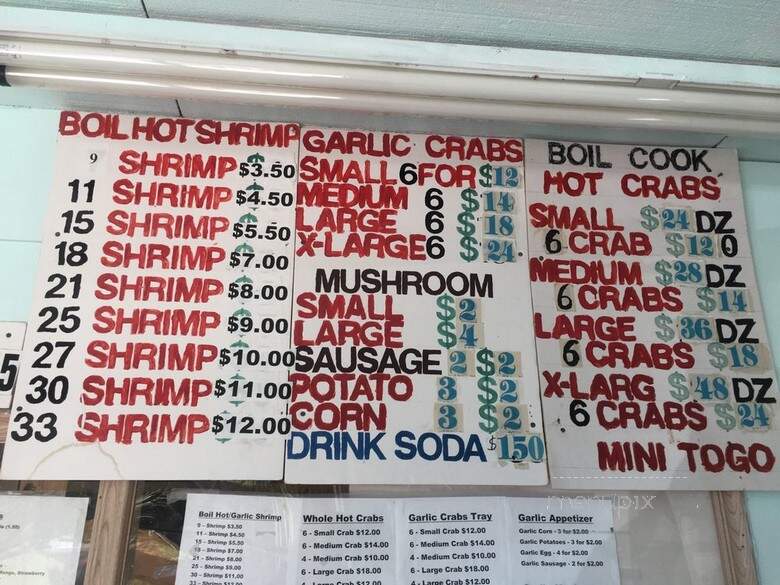 BOIL HOT SHRIMP
9 SHRIMP $3.50
11 SHRIMP $4.50
.15 SHRIMP $5.50
18 SHRIMP $7.00
21 SHRIMP $8.00
25 SHRIMP $9.00
27 SHRIMP $10.00
30 SHRIMP $11.00
33 SHRIMP $12.00
GARLIC CRABS
SMALL 6 FOR $12
MEDIUM 6 $14
LARGE 6 $18
X-LARGE 6 $24
MUSHROOM
SMALL $2
LARGE $4
SAUSAGE 2 $2
POTATO 3 $2
CORN 3 $2
DRINK SODA $150
BOIL COOK
HOT CRABS
SMALL $24 DZ
6 CRAB $12 0
MEDIUM $28 DZ
6 CRABS $14
LARGE $36 DZ
6 CRABS $18
X-LARG $48 DZ
6 CRABS $24
MINI TOGO
5
Boil Hot/Garlic Shrimp
9 - Shrimp $3.50
11 - Shrimp $4.50
15 - Shrimp $5.50
18 - Shrimp $7.00
21 - Shrimp $8.00
25 - Shrimp $9.00
30 - Shrimp $11.00
33 - Shrimp $12.00
Whole Hot Crabs
6 - Small Crab $12.00
6 - Medium Crab $14.00
4 - Medium Crab $10.00
6 - Large Crab $18.00
4 - Large Crab $12.00
Garlic Crabs Tray
6 - Small Crab $12.00
6 - Medium Crab $14.00
4 - Medium Crab $10.00
6 - Large Crab $18.00
4 - Large Crab $12.00
Garlic Appetizer
Garlic Corn - 3 for $2.00
Garlic Potatoes - 3 for $2.00
Garlic Egg - 4 for $2.00
Garlic Sausage - 2 for $2.00
Strawberry